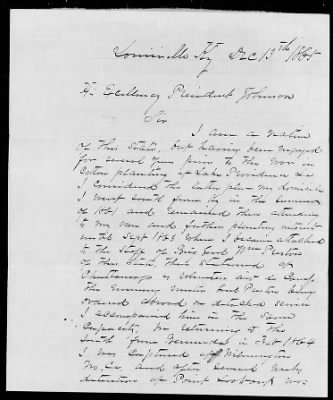 Louisville Ky Dec 13th 1865
His Excellency President Johnson
Sir
I am a native
of this State, but having been engaged
for several years prior to the War in
Cotton planting at Lake Providence La
I considered the latter place my domicile
I went South from Ky in the Summer
of 1861 and remained there attending
to my own and father's planting interests
until Sept 1863 when I became attached
to the Staff of Brig Genl Wm Preston
of this State then stationed at
Chattanooga as Volunteer aid de Camp,
the Genl Preston being
ordered abroad on detached service
I accompanied him in the same
Capacity. On returning to the
South from Bermuda in Feb 1864
I was Captured off Wilmington
No. Ca, and after several weeks
detention at Point Lookout was